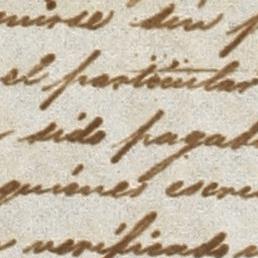 sin
el particular
sido pagad
quienes escri
verificado